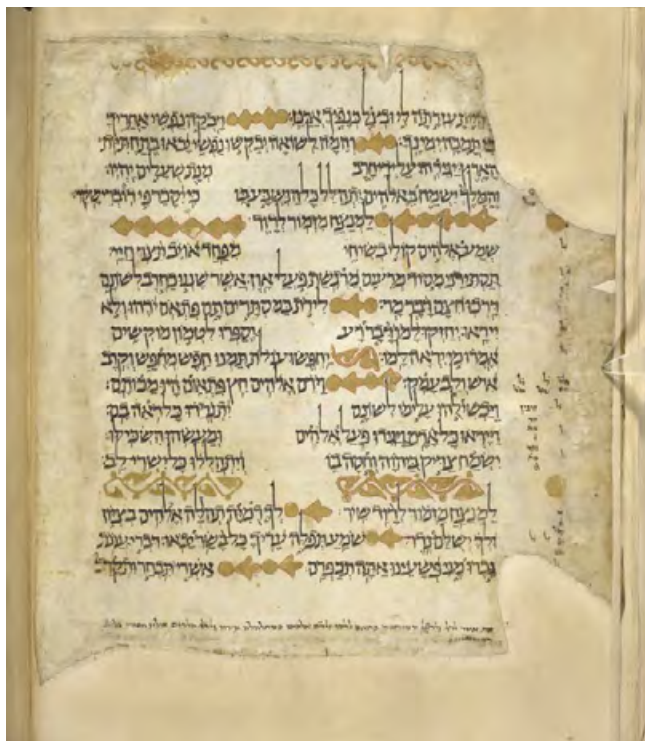 היית עזרתה לי ובצל כנפיך ארנן׃ דבקה נפשי אחריך
בי תמכה ימינך׃ והמה לשואה יבקשו נפשי יבאו בתחתיות
הארץ׃ יגירהו על ידי חרב מנת שעלים יהיו׃
והמלך ישמח באלהים יתהלל כל הנשבע בו כי יסכר פי דוברי שקר׃
למנצח מזמור לדוד׃
שמע אלהים קולי בשיחי מפחד אויב תצר חיי׃
תסתירני מסוד מרעים מרגשת פעלי און׃ אשר שננו כחרב לשונם
דרכו חצם דבר מר׃ לירת במסתרים תם פתאם ירהו ולא
ייראו׃ יחזקו למו דבר רע יספרו לטמון מוקשים
אמרו מי יראה למו׃ יחפשו עולת תמנו חפש מחפש וקרב
איש ולב עמק׃ וירם אלהים חץ פתאום היו מכותם׃
ויכשילהו עלימו לשונם יתנדדו כל ראה בם׃
וייראו כל אדם ויגידו פעל אלהים ומעשהו השכילו׃
ישמח צדיק ביהוה וחסה בו ויתהללו כל ישרי לב׃
למנצח מזמור לדוד שיר׃ לך דמיה תהלה אלהים בציון
ולך ישלם נדר׃ שמע תפלה עדיך כל בשר יבאו׃ דברי עונת
גברו מני פשעינו אתה תכפרם׃ אשרי תבחר ותקרב